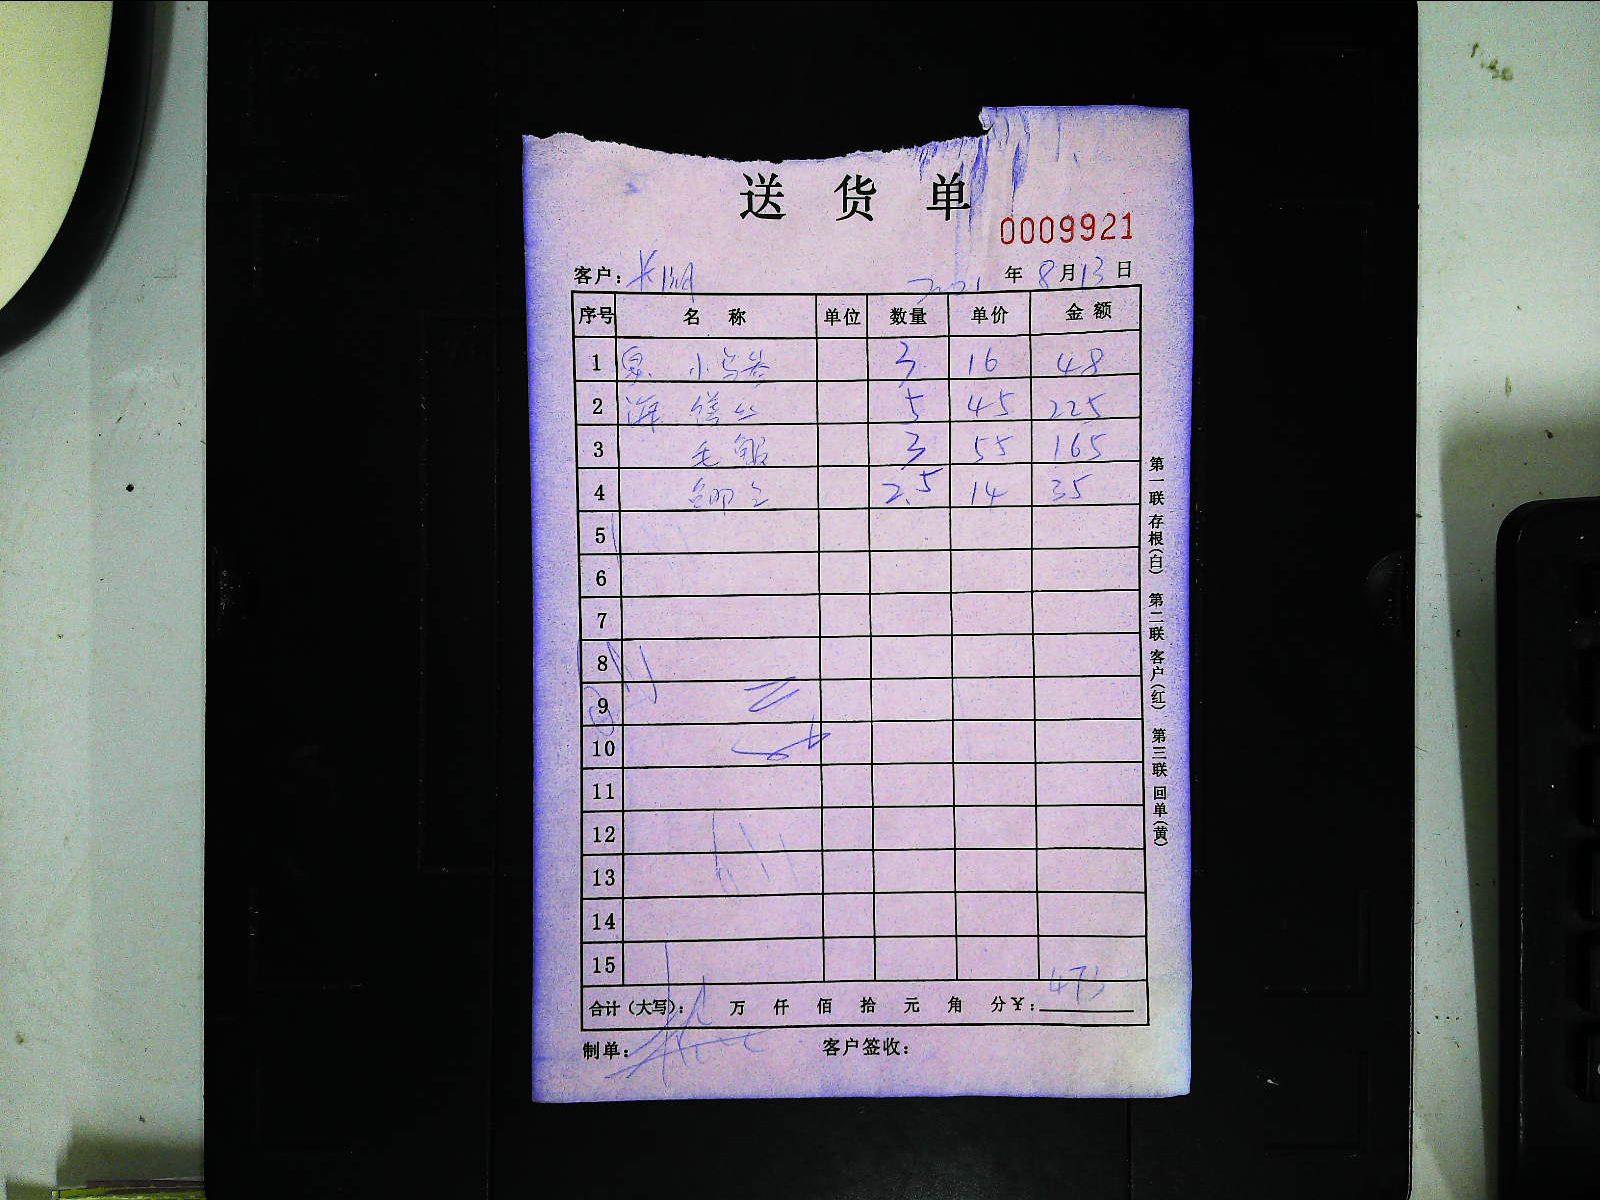 送货单
0009921
客户： 2021年8月13日
序号 名称 单位 数量 单价 金额
1 小 3 16 48
2 海 5 45 225
3 毛 3 55 165
4 2.5 14 35
5
6
7
8
9
10
11
12
13
14
15
合计（大写）： 万 仟 佰 拾 元 角 分￥： 473
制单： 客户签收：
第一联 存根（白） 第二联 客户（红） 第三联 回单（黄）